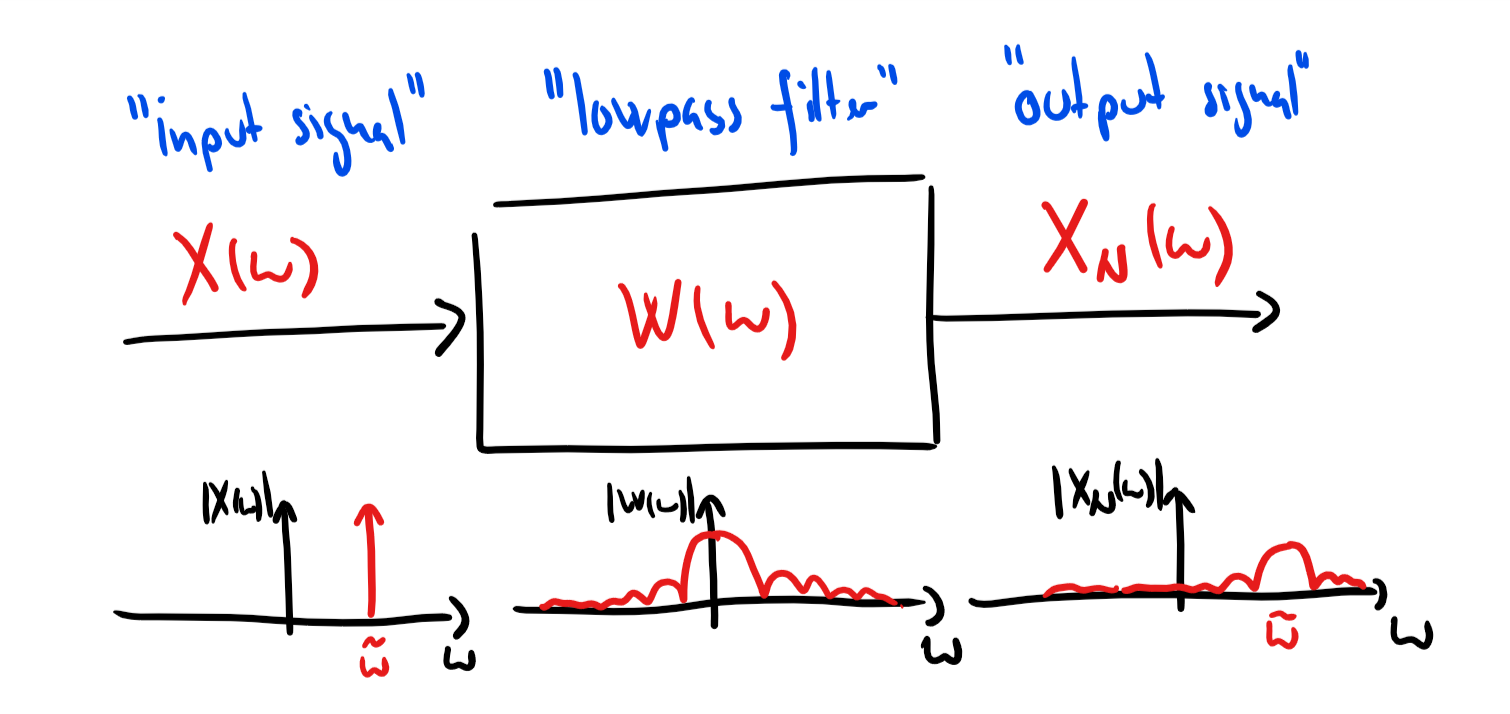 "input signal" "lowpass filter" "output signal"
X(ω) W(ω) X_N(ω)
|X(ω)| |W(ω)| |X_N(ω)|
ω̃ ω ω ω̃ ω